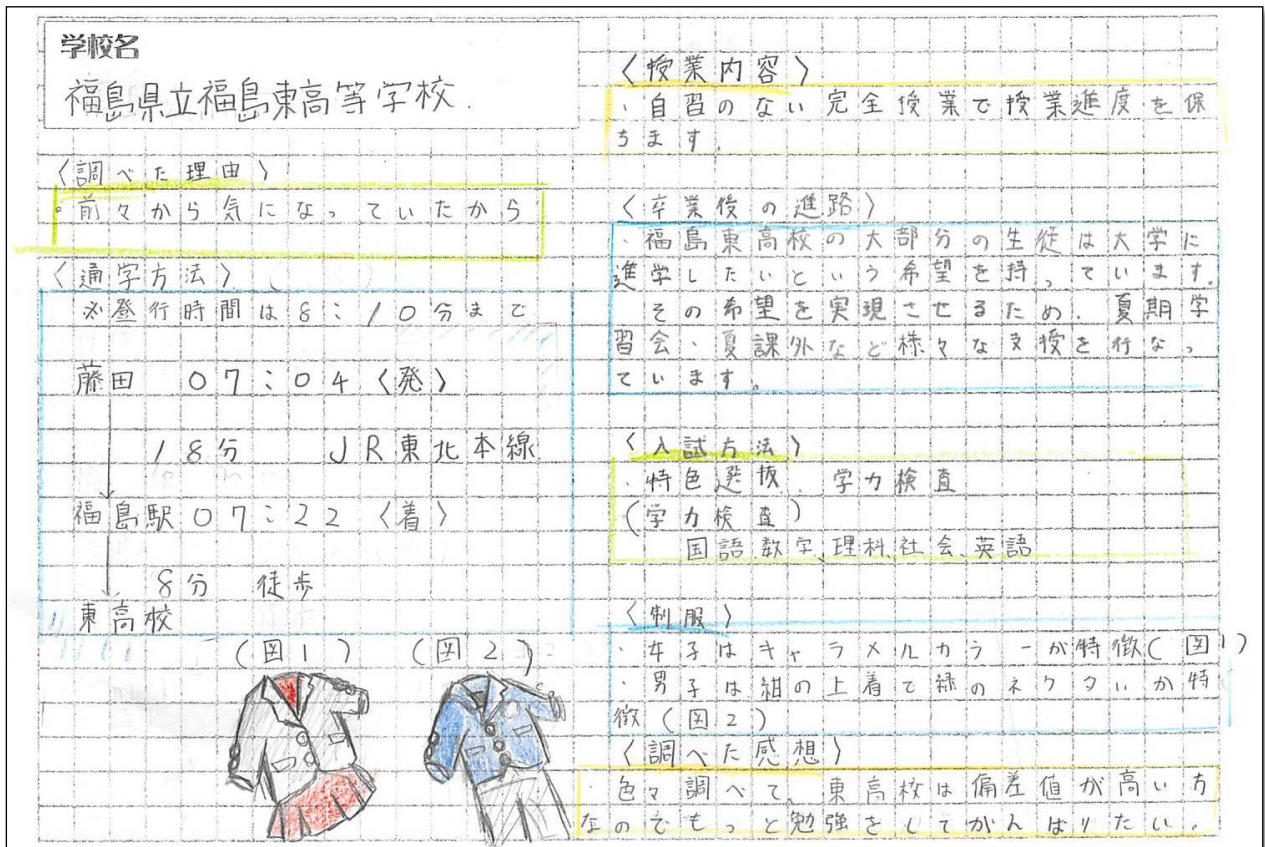 学校名
福島県立福島東高等学校.
〈調べた理由〉
・前々から気になっていたから
〈通字方法〉
※登行時間は8:10分まで
藤田 07:04〈発〉
18分 JR東北本線
福島駅07:22〈着〉
8分 徒歩
東高校
(図1) (図2)
〈授業内容〉
・自習のない完全授業で授業進度を保
ちます.
〈卒業後の進路〉
・福島東高校の大部分の生徒は大学に
進学したいという希望を持っています.
その希望を実現させるため、夏期学
習会・夏課外など様々な支援を行なっ
ています。
〈入試方法〉
・特色選抜、学力検査
(学力検査)
国語、数学、理科、社会、英語
〈制服〉
・女子はキャラメルカラーが特徴(図1)
・男子は紺の上着で緑のネクタいが特
徴(図2)
〈調べた感想〉
・色々調べて、東高校は偏差値が高い方
なのでもっと勉強をしてがんばりたい.